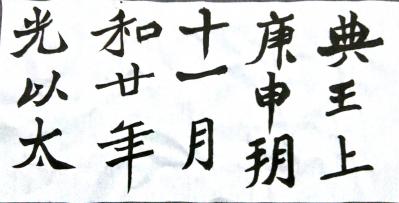 光以太
和廿年
十一月
庚申玥
典王上